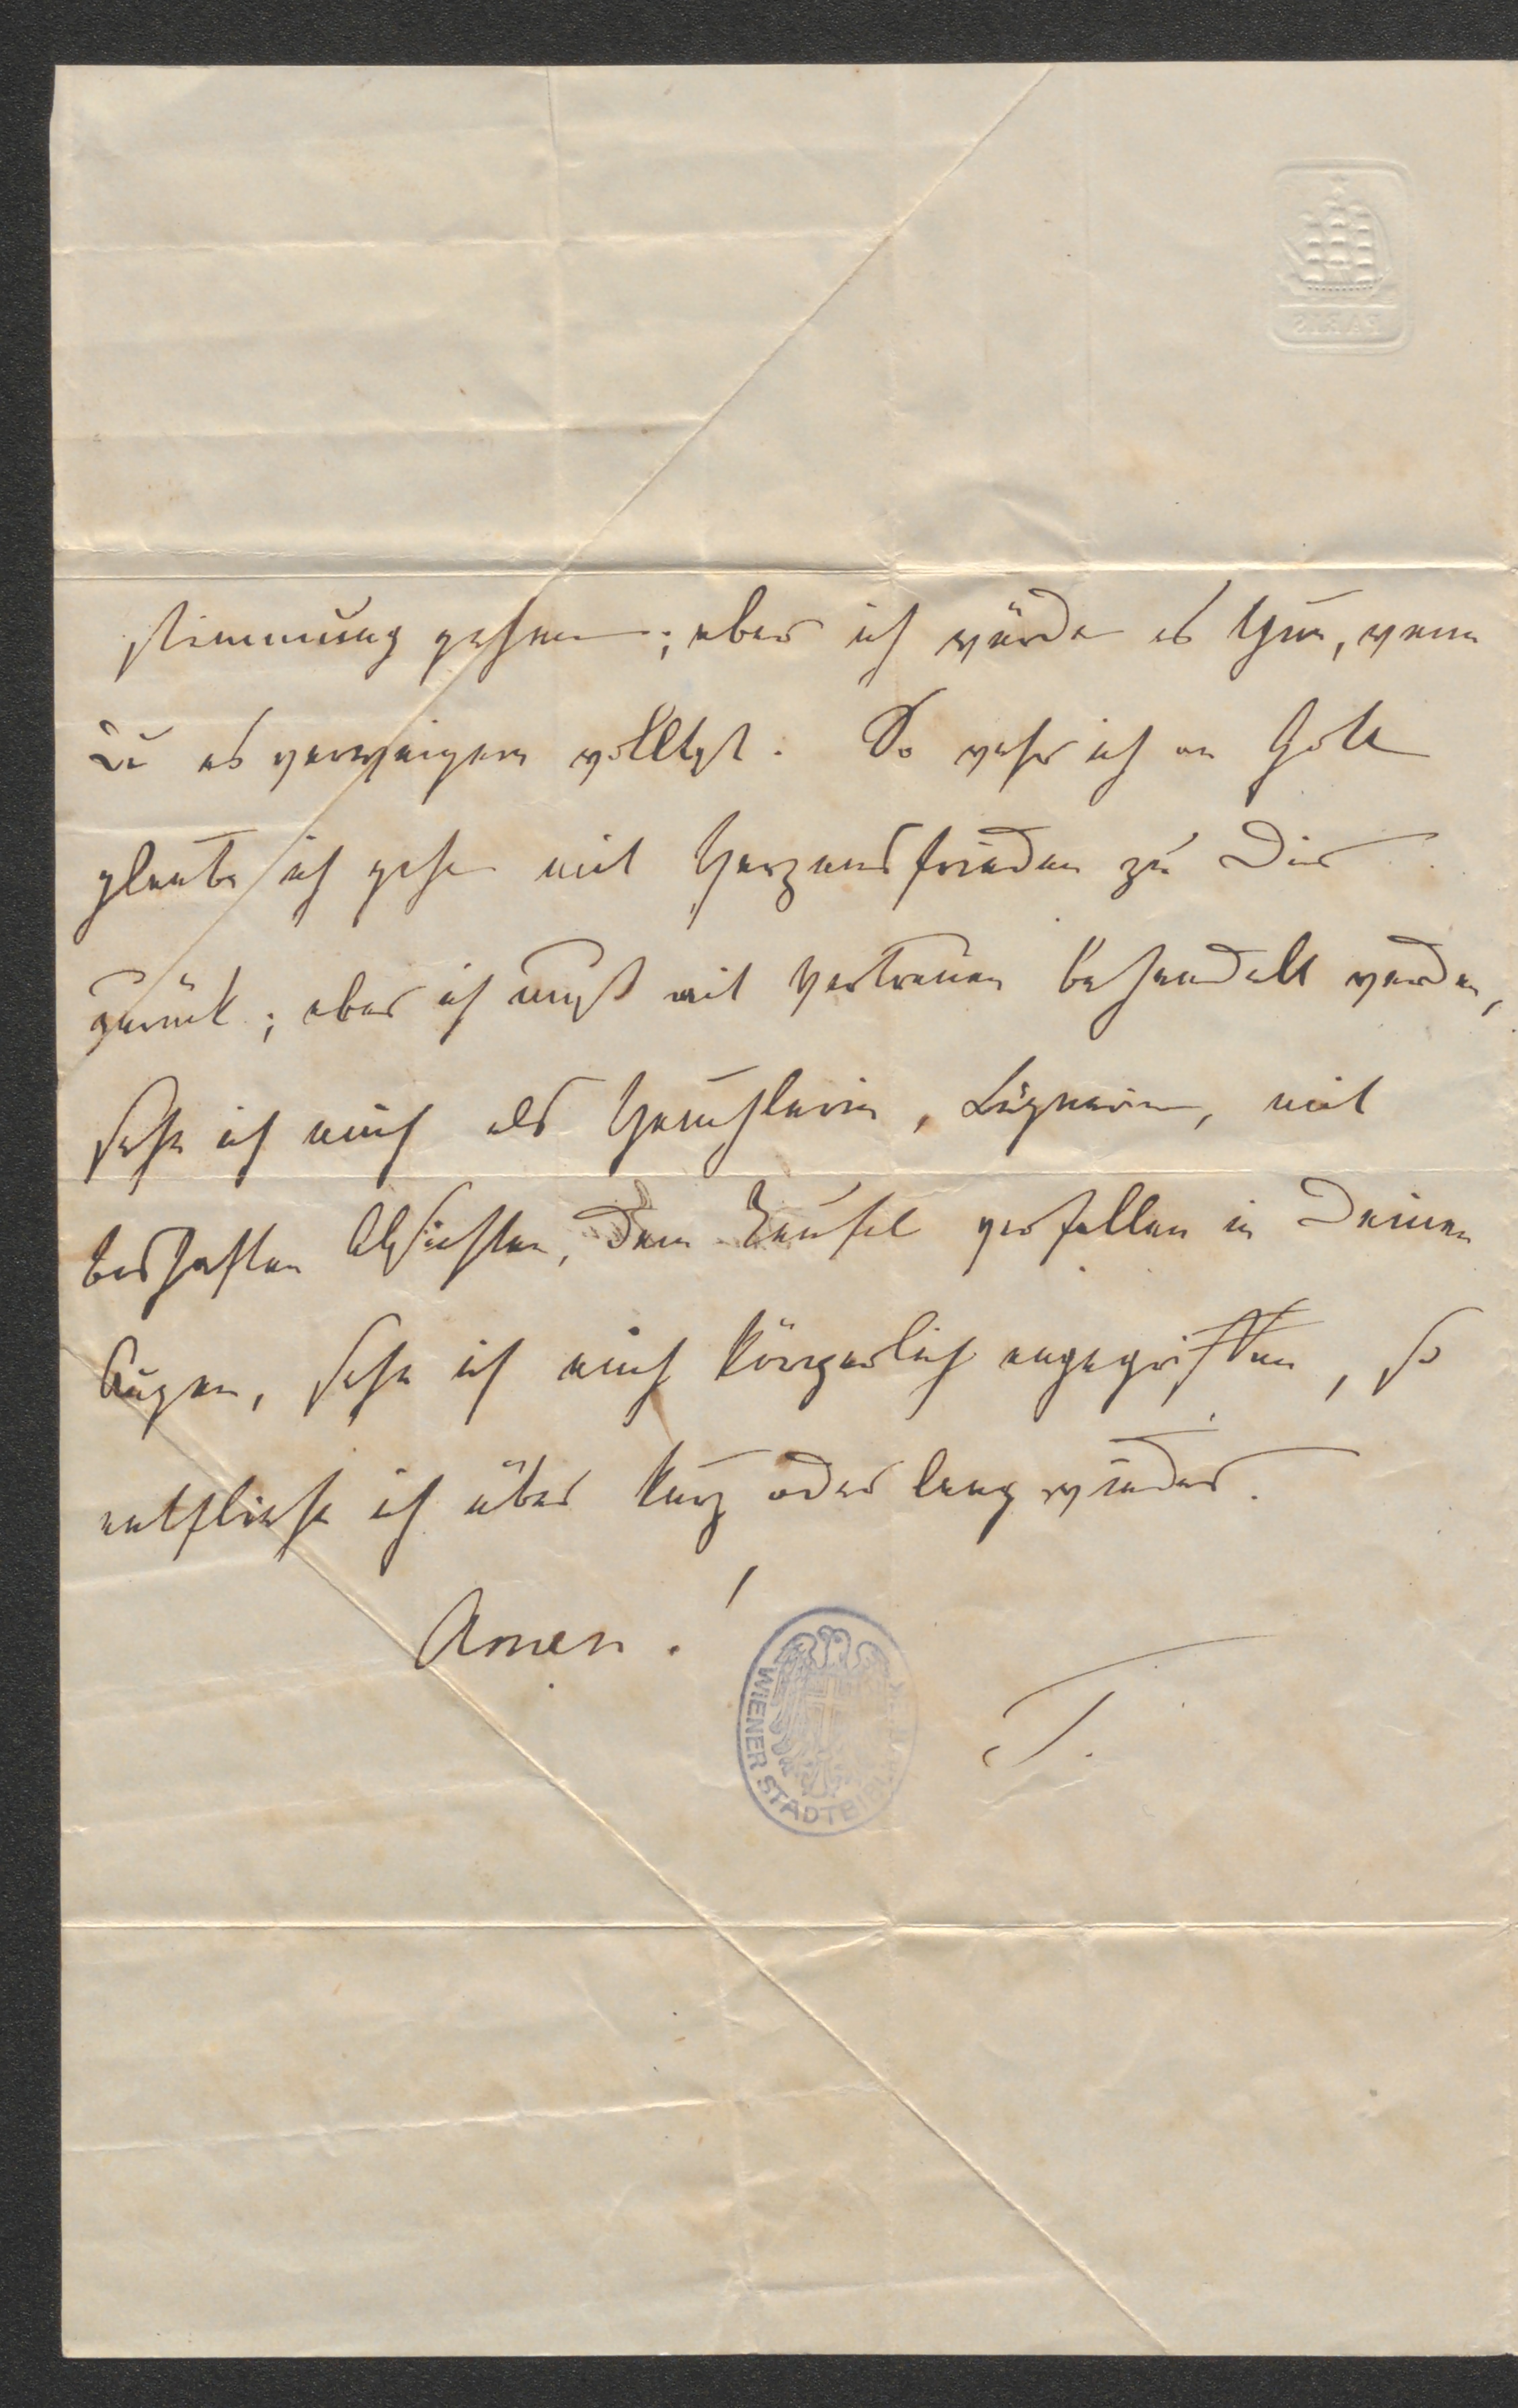 PARIS
stimmung gehen; aber ich würde es thun, wenn
Du es verweigern wolltest. So wahr ich an Gott
glaube ich gehe mit Herzensfrieden zu Dir
zurück; aber ich muß mit Vertrauen behandelt werden,
sehe ich mich als Heuchlerin, Lügnerin, mit
boshaften Absichten, dem Teufel verfallen in Deinen
Augen, sehe ich mich körperlich angegriffen, so
entfliehe ich über kurz oder lang wieder.
Amen!
T.
WIENER STADTBIBLIOTHEK